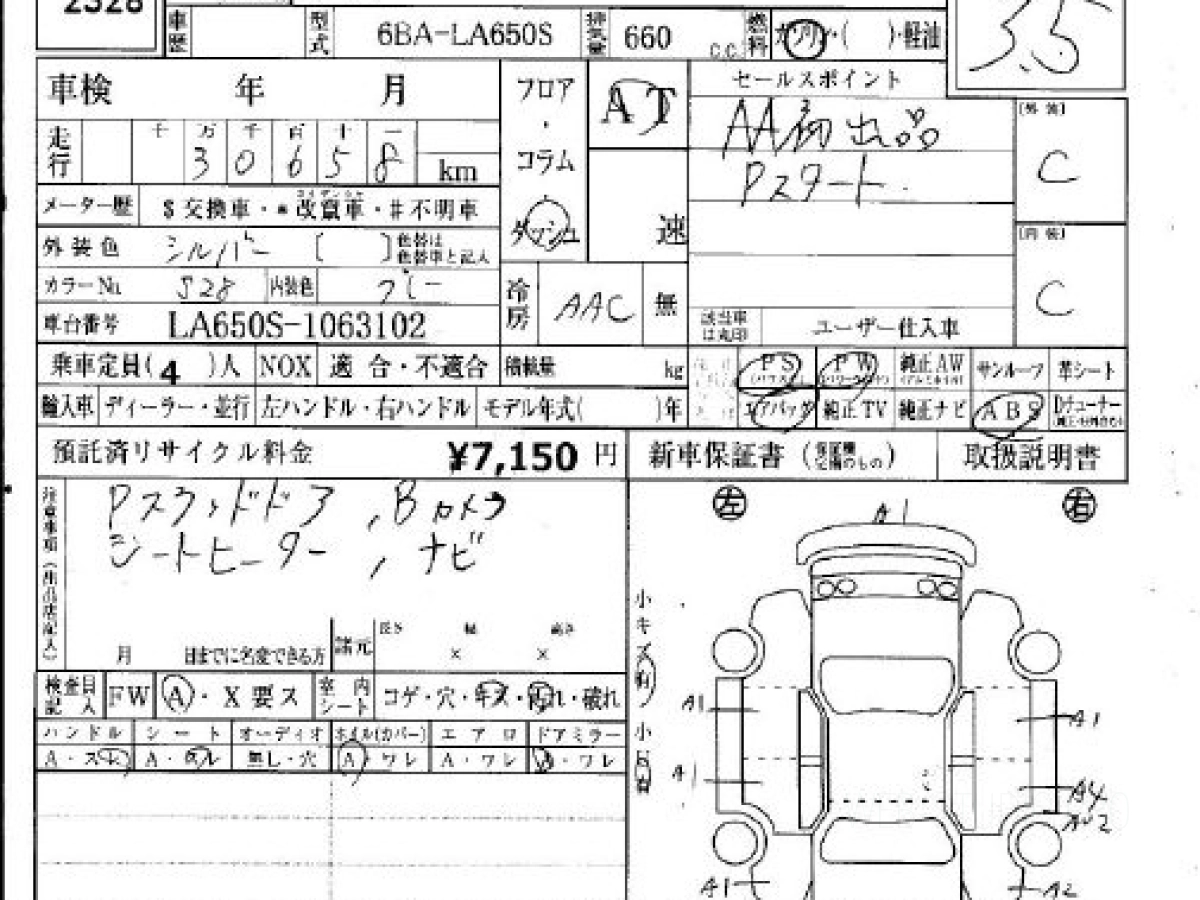 2328
車歴
型式 6BA-LA650S 排気量 660 C.C. 燃料 ガソリン・( )・軽油
3.5
車検 年 月
フロア・コラム・ダッシュ
AT
速
セールスポイント
AA初出品
Pスタート
[外装]
C
[内装]
C
走行 千 万 千 百 十 一
3 0 6 5 8 km
メーター歴 $交換車・*改竄車・#不明車
外装色 シルバー [ ] 色替は色替車と記入
カラーNo. S28 内装色 グレー
冷房 AAC 無
車台番号 LA650S-1063102
該当車は丸印 ユーザー仕入車
乗車定員( 4 )人 NOX 適合・不適合 積載量 kg
PS PW 純正AW サンルーフ 革シート
輸入車 ディーラー・並行 左ハンドル・右ハンドル モデル年式( )年
エアバッグ 純正TV 純正ナビ ABS
預託済リサイクル料金 ¥7,150 円
新車保証書 取扱説明書
Pスライドドア , Bカメラ
シートヒーター , ナビ
左 右
月 日までに名変できる方 諸元 長さ × 幅 × 高さ
検査員記入 FW A・X要ス 室内シート コゲ・穴・キズ・汚れ・破れ
ハンドル シート オーディオ ホイル(カバー) エアロ ドアミラー
無し・穴 A・ワレ A・ワレ
小キズ
A1
A1
A1
A1
A4
A1
A2